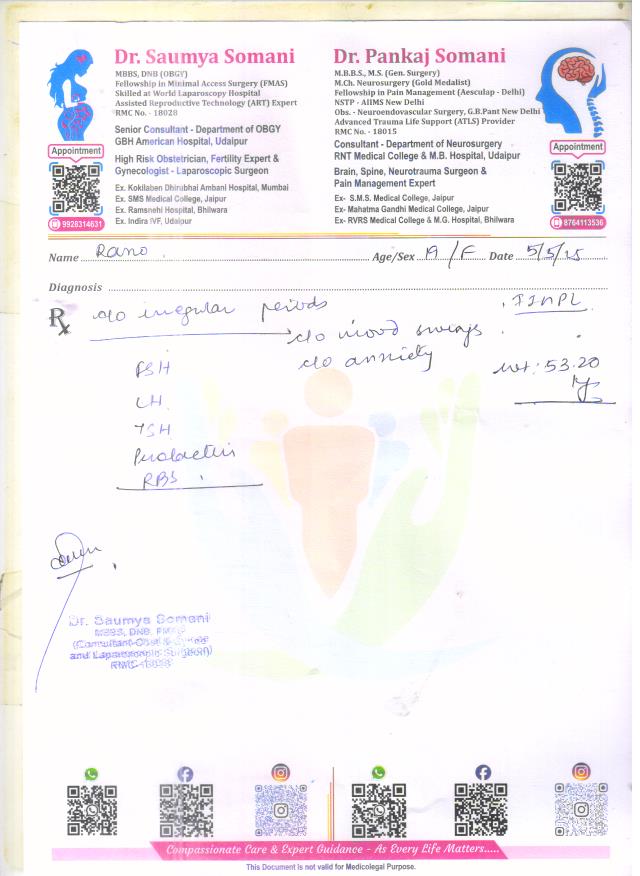 Dr. Saumya Somani
MBBS, DNB (OBGY)
Fellowship in Minimal Access Surgery (FMAS)
Skilled at World Laparoscopy Hospital
Assisted Reproductive Technology (ART) Expert
RMC No. - 18028
Senior Consultant - Department of OBGY
GBH American Hospital, Udaipur
High Risk Obstetrician, Fertility Expert &
Gynecologist - Laparoscopic Surgeon
Ex. Kokilaben Dhirubhai Ambani Hospital, Mumbai
Ex. SMS Medical College, Jaipur
Ex. Ramsnehi Hospital, Bhilwara
Ex. Indira IVF, Udaipur
Appointment
9928314631
Dr. Pankaj Somani
M.B.B.S., M.S. (Gen. Surgery)
M.Ch. Neurosurgery (Gold Medalist)
Fellowship in Pain Management (Aesculap - Delhi)
NSTP - AIIMS New Delhi
Obs. - Neuroendovascular Surgery, G.B.Pant New Delhi
Advanced Trauma Life Support (ATLS) Provider
RMC No. - 18015
Consultant - Department of Neurosurgery
RNT Medical College & M.B. Hospital, Udaipur
Brain, Spine, Neurotrauma Surgeon &
Pain Management Expert
Ex- S.M.S. Medical College, Jaipur
Ex- Mahatma Gandhi Medical College, Jaipur
Ex- RVRS Medical College & M.G. Hospital, Bhilwara
Appointment
8764113536
Name Rano Age/Sex 19/F Date 5/5/25
Diagnosis
Rx c/o irregular periods
c/o mood swings
c/o anxiety
wt: 53.20 kgs
FSH
LH
TSH
Prolactin
RBS
Dr. Saumya Somani
MBBS, DNB, FMAS
(Consultant-Obst & Gynec
and Laparoscopic Surgeon)
RMC-18028
Compassionate Care & Expert Guidance - As Every Life Matters.....
This Document is not valid for Medicolegal Purpose.